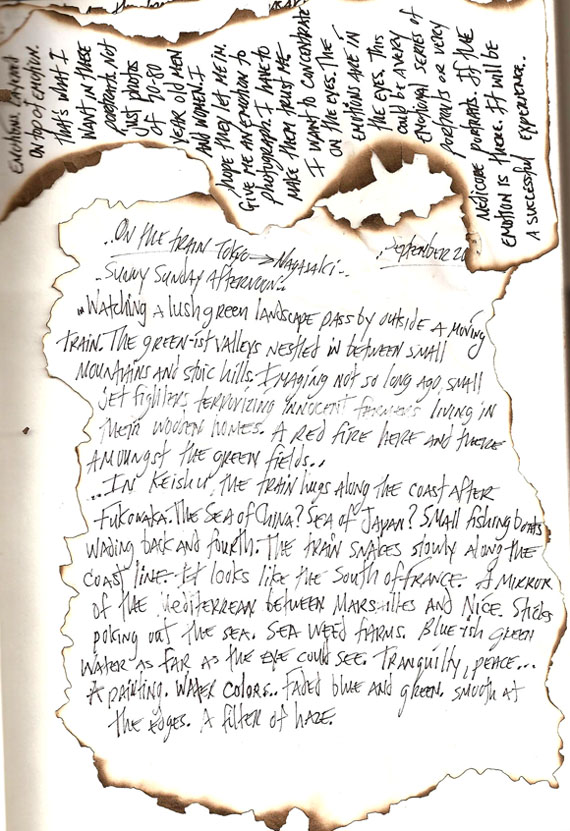 Emotional layered
on top of emotion.
That's what I
want in these
portraits. Not
just photos
of 70-80
year old men
and women. I
hope they let me in.
Give me an emotion to
photograph. I have to
make them trust me
I want to concentrate
on the eyes. The
emotions are in
the eyes. This
could be a very
emotional series of
portraits or very
mediocre portraits. If the
emotion is there. It will be
a successful experience..
..On the train Tokyo → Nagasaki..
.September 20
..Sunny Sunday afternoon..
..Watching a lush green landscape pass by outside a moving
train. The green-ist valleys nestled in between small
mountains and stoic hills. Imaging not so long ago small
jet fighters terrorizing innocent farmers living in
their wooden homes. A red fire here and there
amoungst the green fields..
...In Keishu the train hugs along the coast after
Fukowaka. The Sea of China? Sea of Japan? Small fishing boats
wading back and fourth. The train snakes slowly along the
coast line. It looks like the South of France. A mirror
of the Mediterrean between Marseilles and Nice. Sticks
poking out the sea. Sea weed farms. Blue-ish green
water as far as the eye could see. Tranquilty, peace...
A painting. Water colors.. Faded blue and green. smooth at
the edges. A filter of haze.